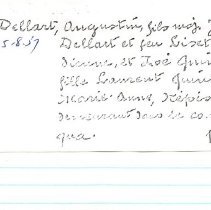 Dellart, Augustin, fils maj.
5-8-57 Dellart et feu Liset
Dienne, et Zoé Quin
fille Laurent Quin
Marie Anne,
demeurant dans le co
qua.